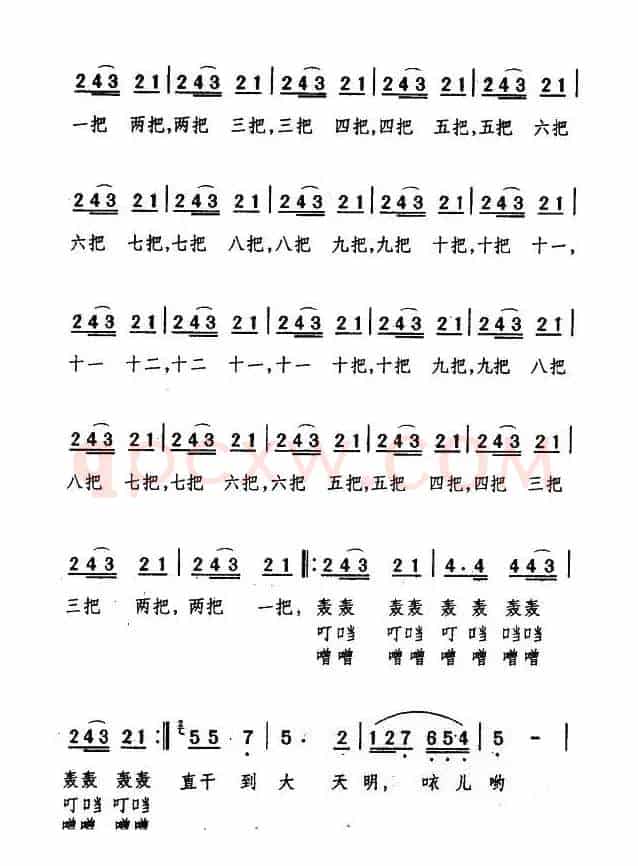 243 21 | 243 21 | 243 21 | 243 21 | 243 21 |
一把 两把,两把 三把,三把 四把,四把 五把,五把 六把
243 21 | 243 21 | 243 21 | 243 21 | 243 21 |
六把 七把,七把 八把,八把 九把,九把 十把,十把 十一,
243 21 | 243 21 | 243 21 | 243 21 | 243 21 |
十一 十二,十二 十一,十一 十把,十把 九把,九把 八把
243 21 | 243 21 | 243 21 | 243 21 | 243 21 |
八把 七把,七把 六把,六把 五把,五把 四把,四把 三把
243 21 | 243 21 ‖: 243 21 | 4. 4 443 |
三把 两把,两把 一把,轰轰 轰轰 轰 轰 轰轰
叮当 叮当 叮 当 当当
噌噌 噌噌 噌 噌 噌噌
243 21 :‖ 55 7 | 5. 2 | 127 654 | 5 - |
轰轰 轰轰 直干 到 大 天明, 咴儿 哟
叮当 叮当
噌噌 噌噌
qpcxw.com